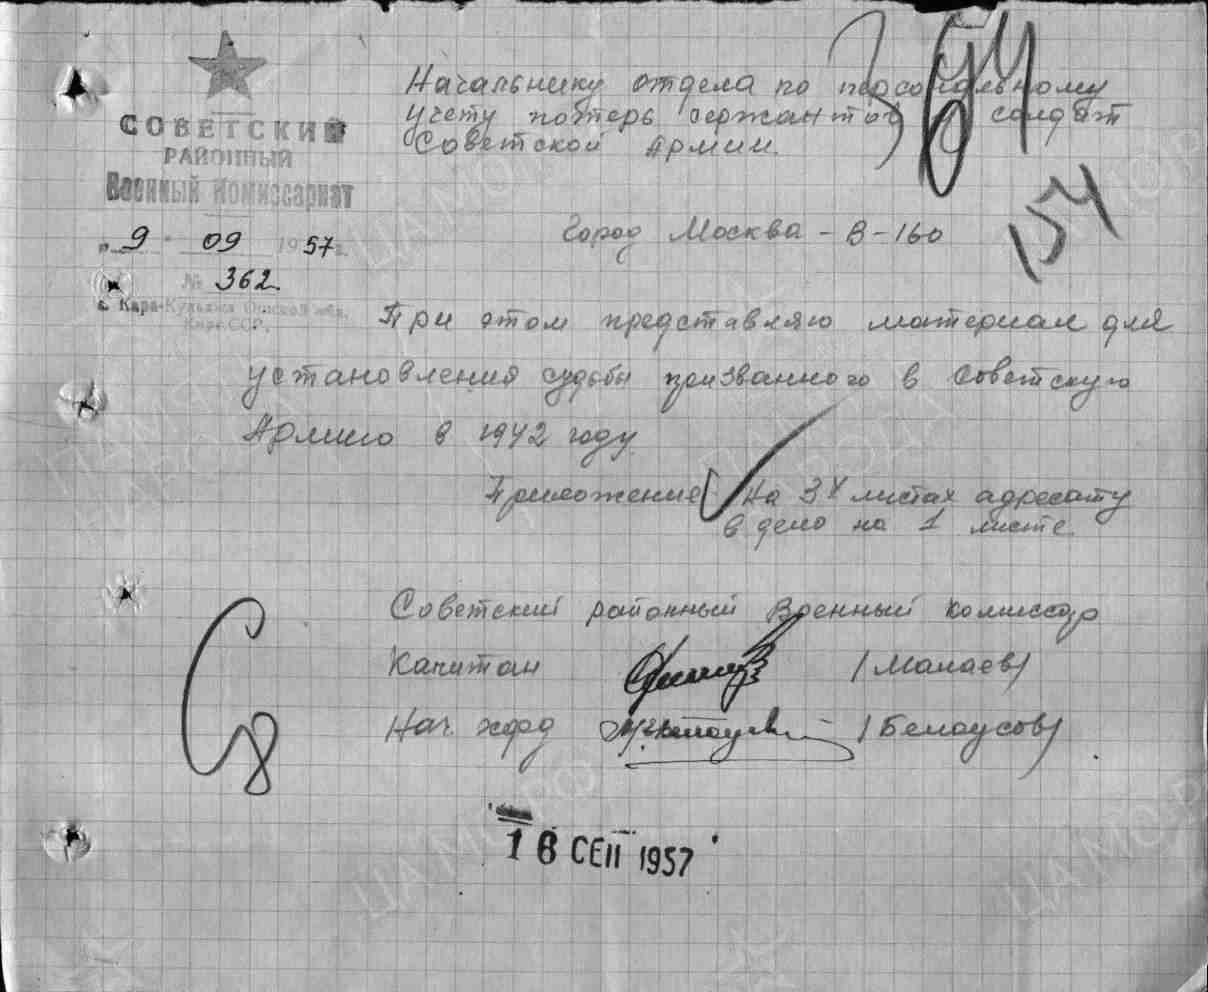 СОВЕТСКИЙ
РАЙОННЫЙ
Военный Комиссариат
„9" 09 1957 г.
№ 362.
с. Кара-Кульджа Ошской обл.
Кирг.ССР.
Начальнику отдела по персональному
учету потерь сержантов и солдат
Советской Армии.
Город Москва - В-160
154
При этом представляю материал для
установления судьбы призванного в Советскую
Армию в 1942 году.
Приложение: На 3х листах адресату
в дело на 1 листе
Советский районный Военный комиссар
Капитан / Малаев /
Нач. хфрд / Белоусов /
16 СЕП 1957
ЦА МО РФ